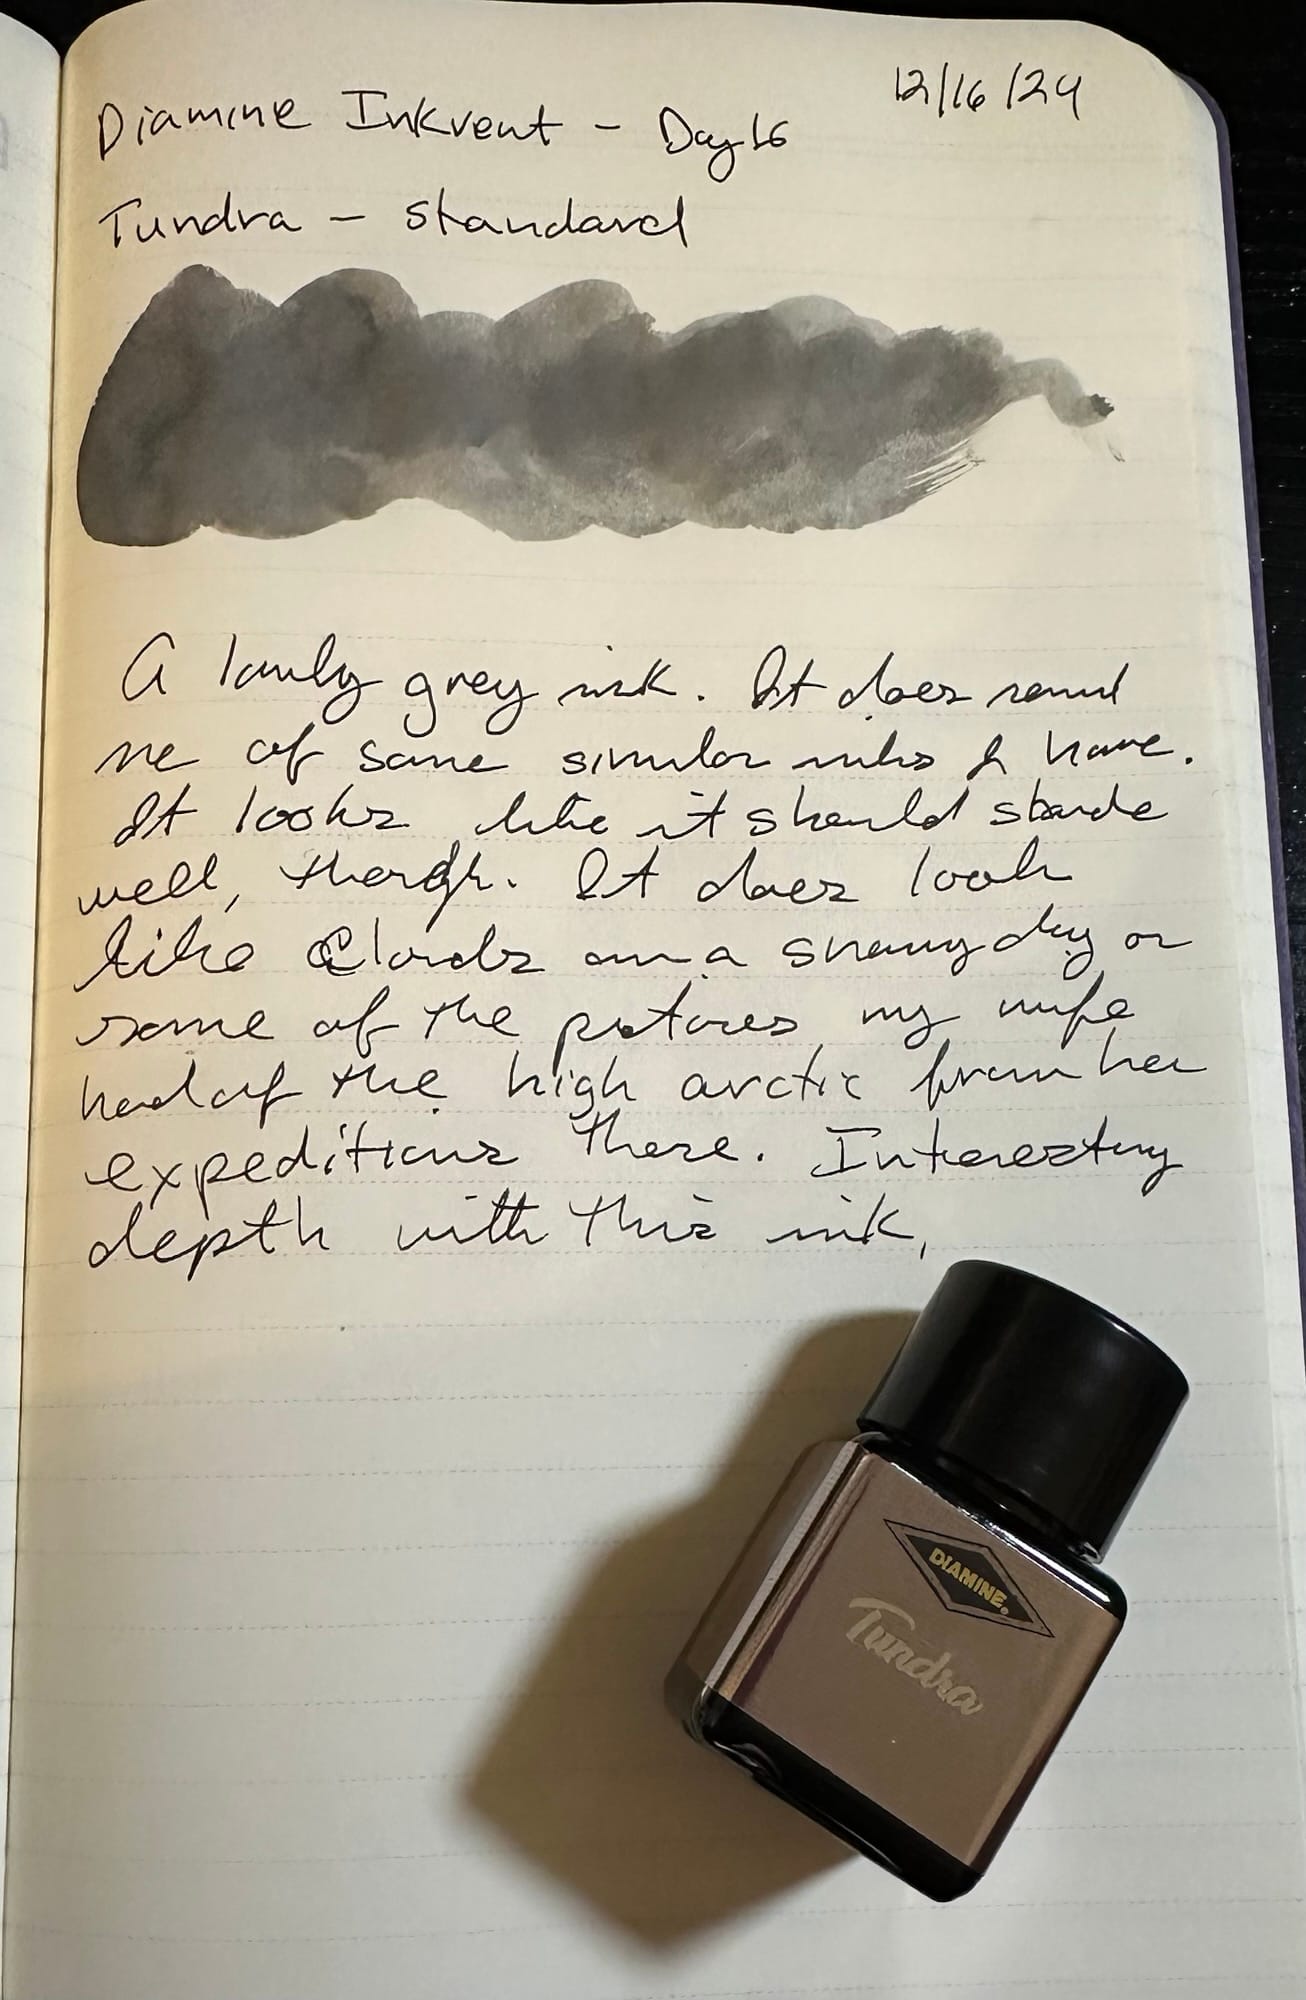 12/16/24
Diamine Inkvent - Day 16
Tundra - Standard
A lovely grey ink. It does remind
me of some similar inks I have.
It looks like it should shade
well, though. It does look
like Clouds on a snowy day or
some of the pictures my wife
had of the high arctic from her
expeditions there. Interesting
depth with this ink,
DIAMINE®
Tundra